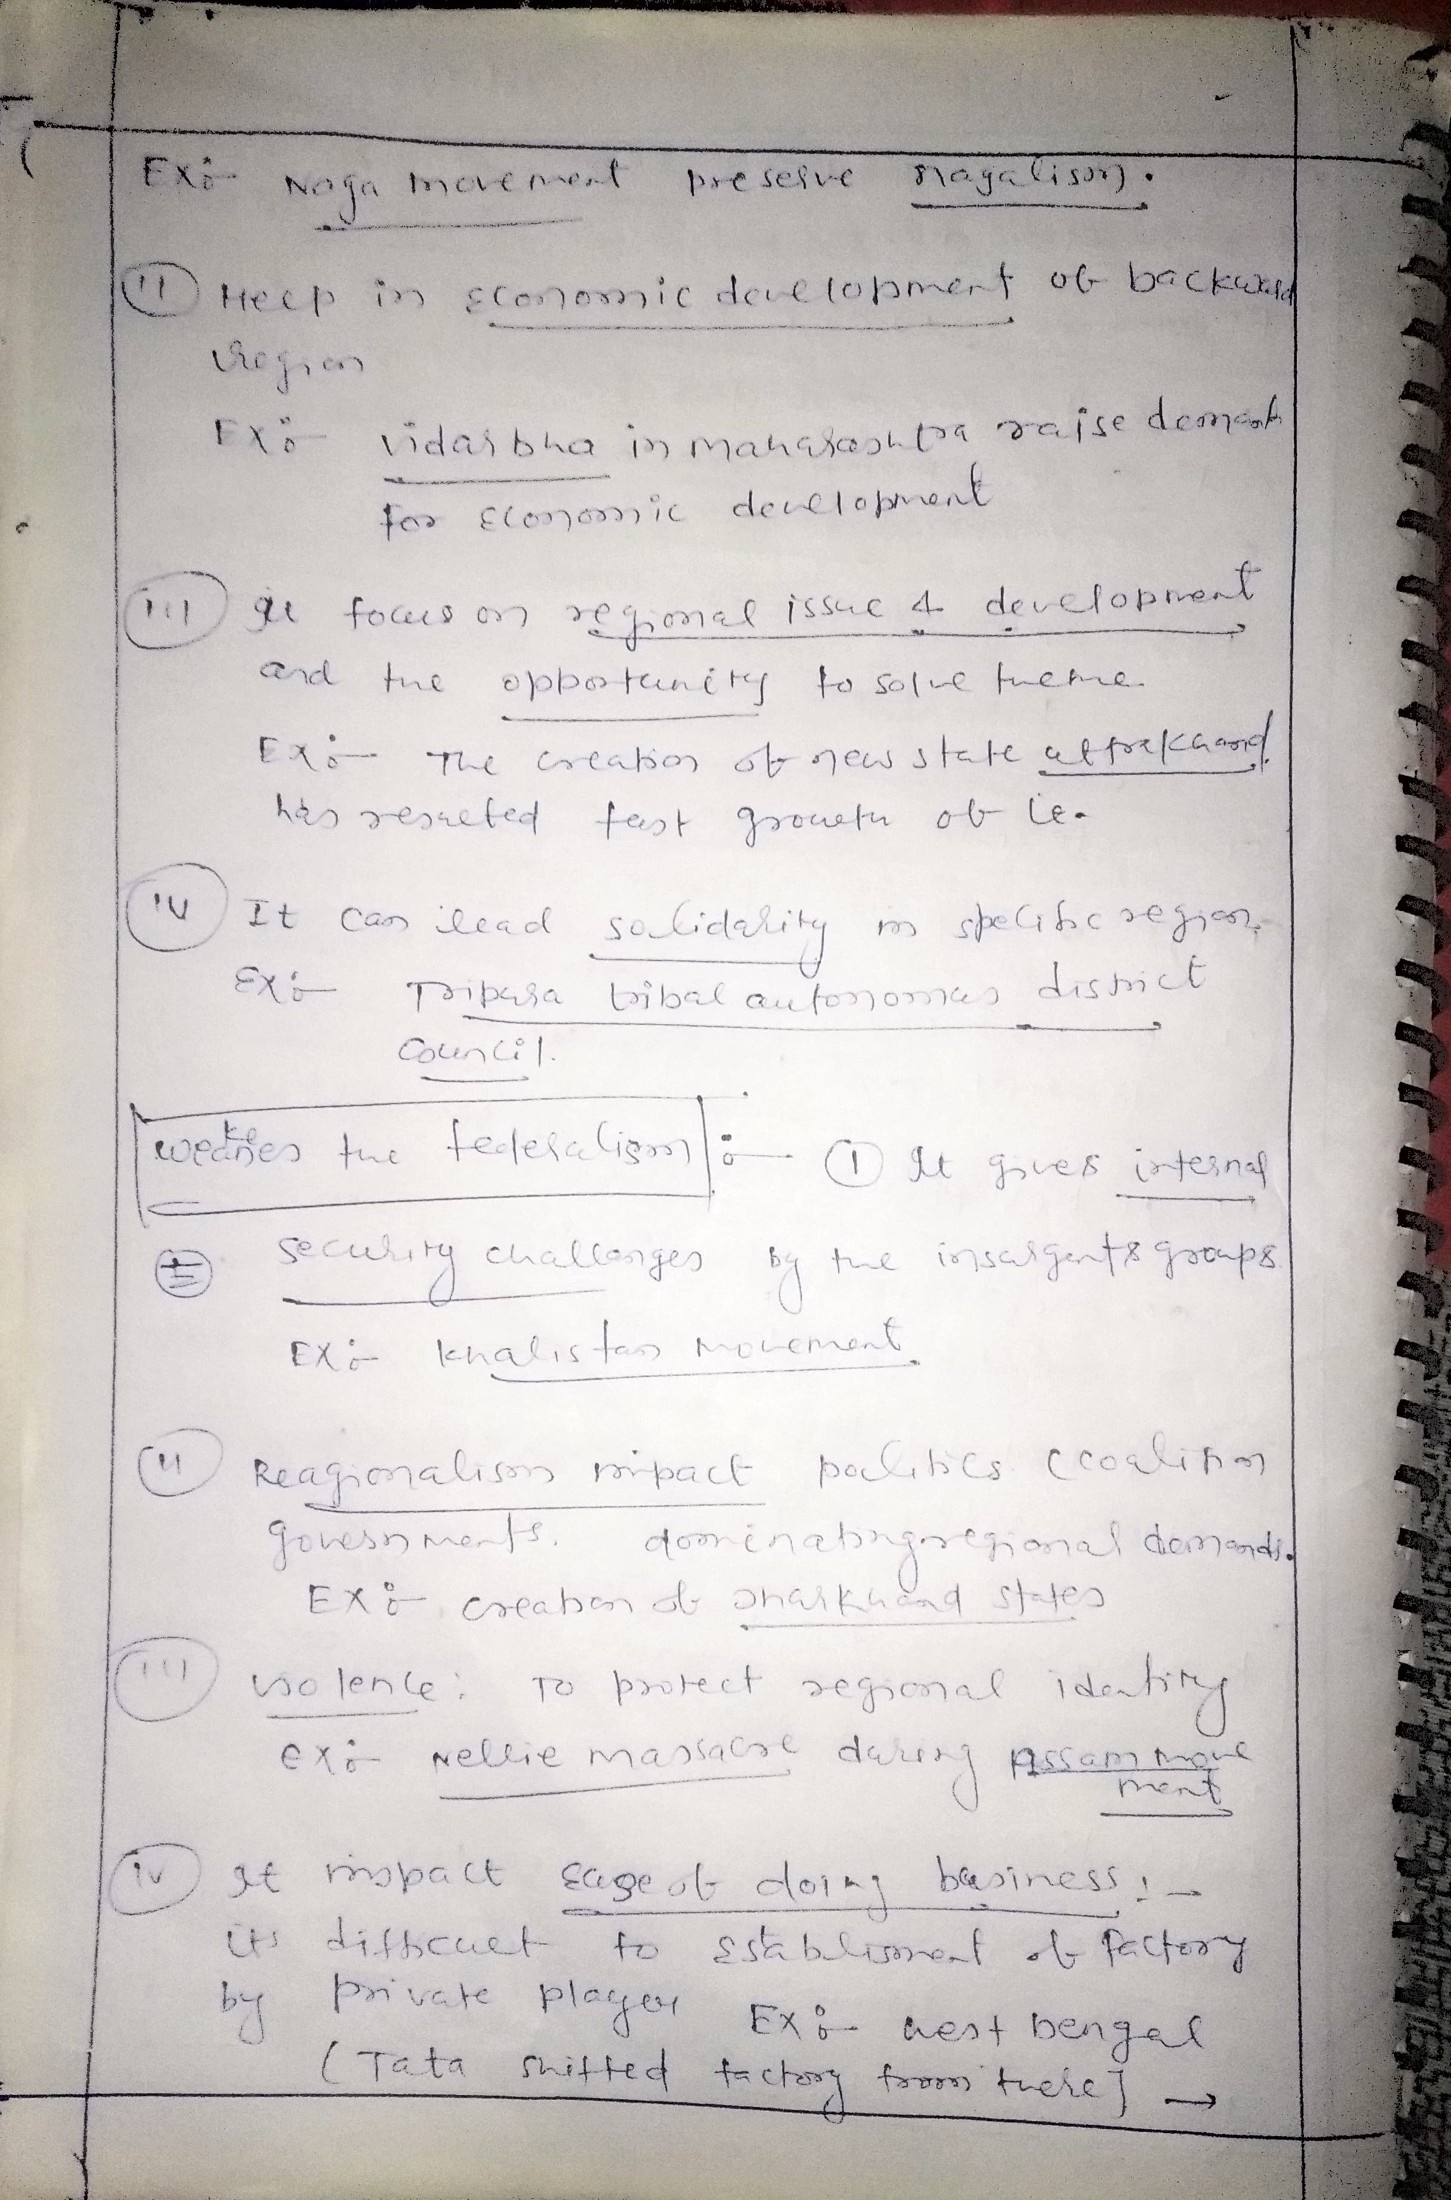 Ex:- Naga movement preserve nagalism.
(ii) Help in economic development of backward
region
Ex:- vidarbha in maharashtra raise demand
for economic development
(iii) It focus on regional issue & development
and the opportunity to solve theme.
Ex:- The creation of new state uttrakhand
has resulted fast growth of it.
(iv) It can lead solidarity in specific region.
Ex:- Tripura tribal autonomous district
council.
weakes the federalism :- (1) It gives internal
security challenges by the insurgents groups
Ex:- khalistan movement.
(ii) Reagionalism impact politics (coalition
governments. dominating regional demands.
Ex:- creation of Jharkhand states
(iii) violence: To protect regional identity
ex:- Nellie massacre during Assam move
ment
(iv) It impact ease of doing business :-
its difficult to establisment of factory
by private player Ex:- west bengal
(Tata shifted factory from there] →